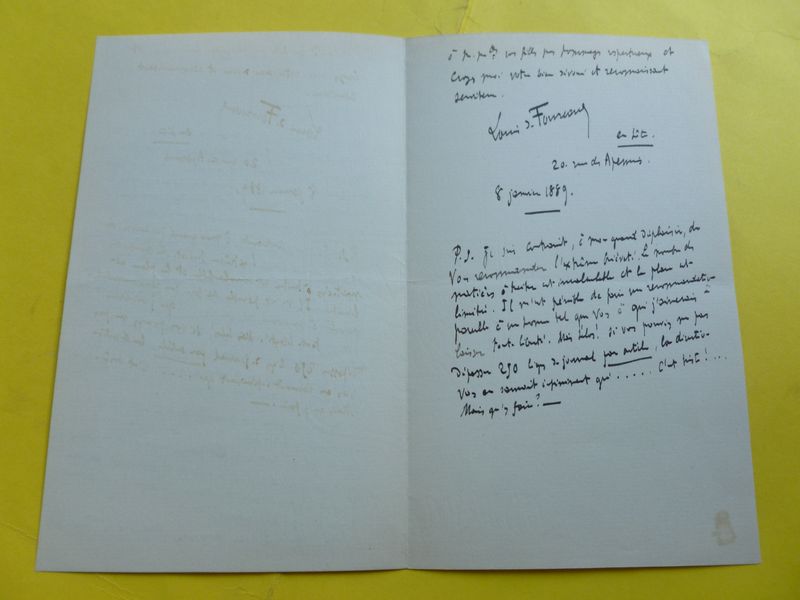 à M. vos fils mes hommages respectueux et
Croyez moi votre bien dévoué et reconnaissant
serviteur.
Louis de Fourcaud
en hâte.
20. rue des Apennins.
8 janvier 1889.
P.S. Je suis contraint, à mon grand déplaisir, de
vous recommander l'extrême brièveté. Le nombre des
matières à traiter est incalculable et la place est
limitée. Il m'est pénible de faire une recommandation
pareille à un homme tel que vous à qui j'aimerais à
laisser toute liberté. Mais hélas! si vous pouviez ne pas
dépasser 250 lignes de journal par article, la direction
vous en saurait infiniment gré..... C'est triste!...
Mais qu'y faire?